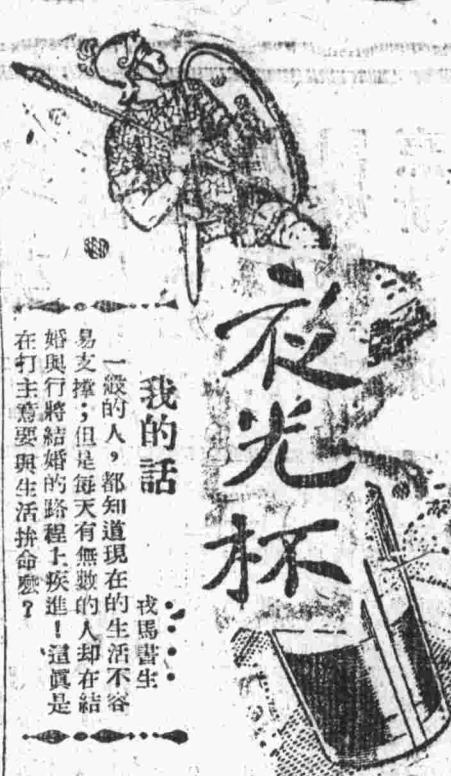 夜光杯
我的話
戎馬書生
一般的人，都知道現在的生活不容
易支撑；但是每天有無數的人却在結
婚與行將結婚的路程上疾進！這眞是
在打主意要與生活拚命麽？